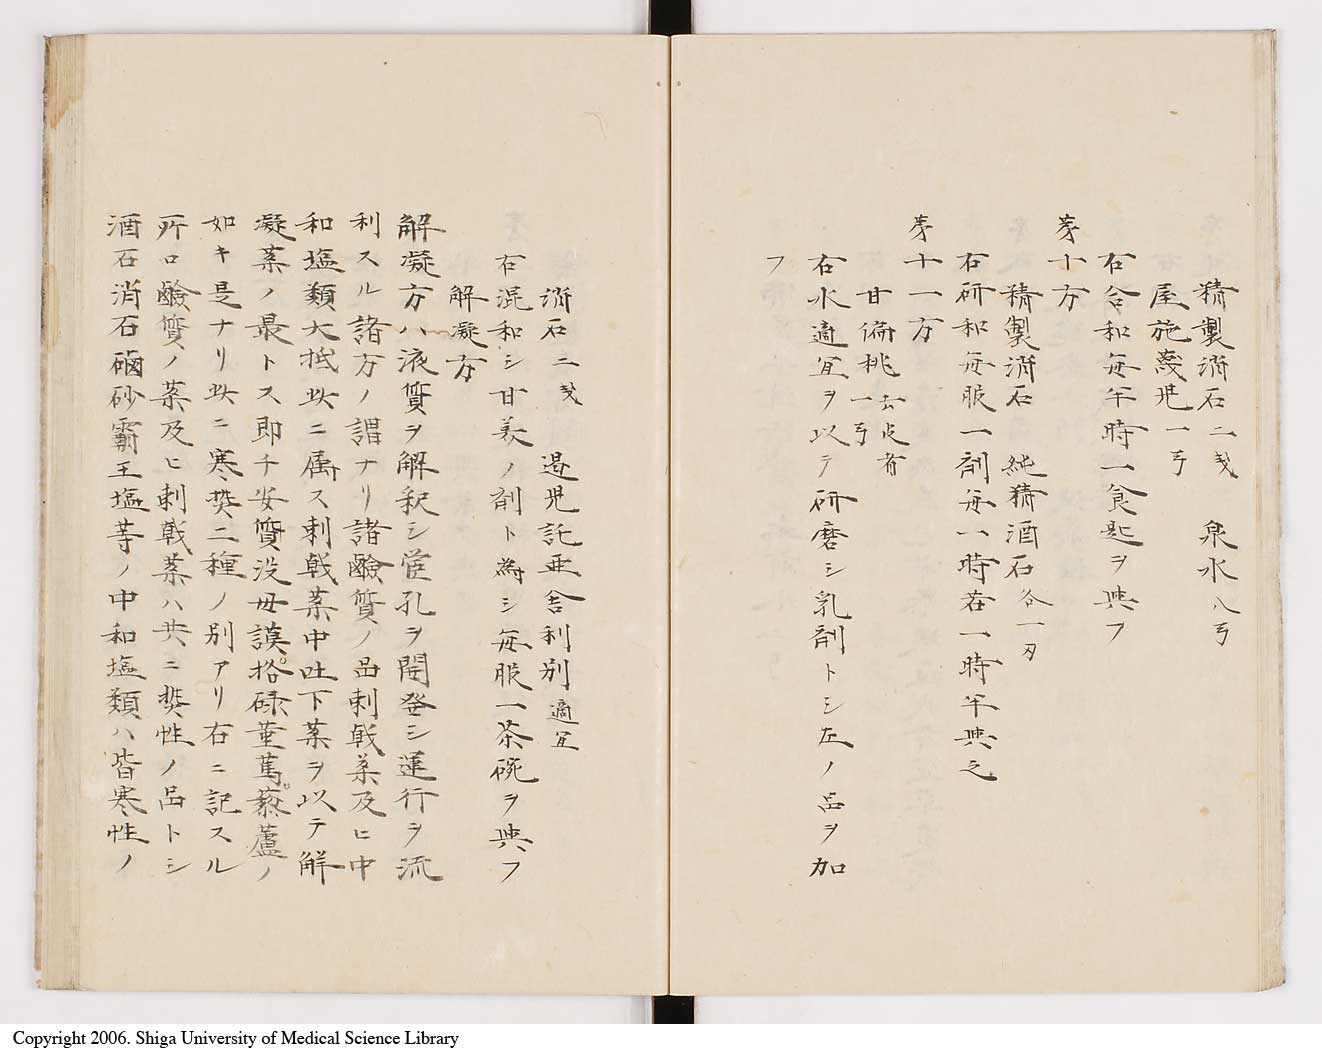 精製消石二戔 泉水八弓
屋施蔑児一弓
右合和毎半時一食匙ヲ與フ
第十方
精製消石 純精酒石各一刃
右研和毎服一剤毎一時若一時半與之
第十一方
甘扁桃去皮者一弓
右水適宜ヲ以テ研磨シ乳剤トシ左ノ品ヲ加
フ
消石二戔 過児託亜舎利別適宜
右混和シ甘美ノ剤ト為シ毎服一茶碗ヲ與フ
解凝方
解凝方ハ液質ヲ解釈シ管孔ヲ開発シ運行ヲ流
利スル諸方ノ謂ナリ諸鹸質ノ品刺戟薬及ヒ中
和塩類大抵此ニ属ス刺戟薬中吐下薬ヲ以テ解
凝薬ノ最トス即チ安質没母謨格碌菫蔦藜蘆ノ
如キ是ナリ此ニ寒熱二種ノ別アリ右ニ記スル
所ロ鹸質ノ薬及ヒ刺戟薬ハ共ニ熱性ノ品トシ
酒石消石磠砂霸王塩等ノ中和塩類ハ皆寒性ノ
Copyright 2006. Shiga University of Medical Science Library